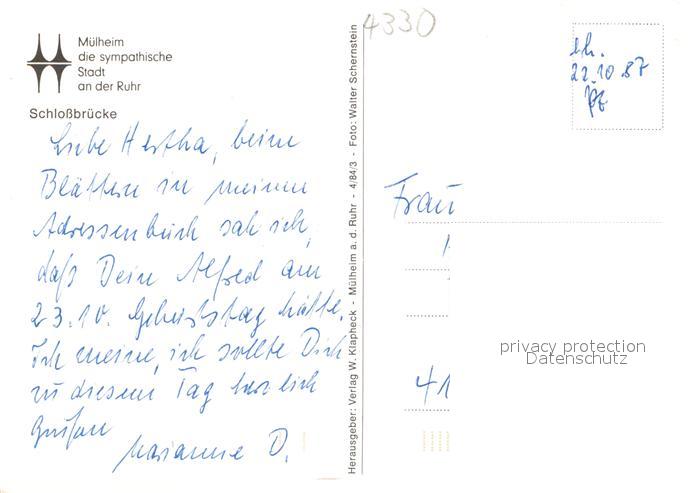 Mülheim
die sympathische
Stadt
an der Ruhr
Schloßbrücke
Liebe Hertha, beim
Blättern in meinem
Adressenbuch sah ich,
daß Dein Alfred am
23.10. Geburtstag hätte.
Ich meine, ich sollte Dich
zu diesem Tag herzlich
grüßen
Marianne D.
Herausgeber: Verlag W. Klapheck - Mülheim a. d. Ruhr - 4/84/3 - Foto: Walter Schernstein
4330
22.10.87
Frau
41
privacy protection
Datenschutz